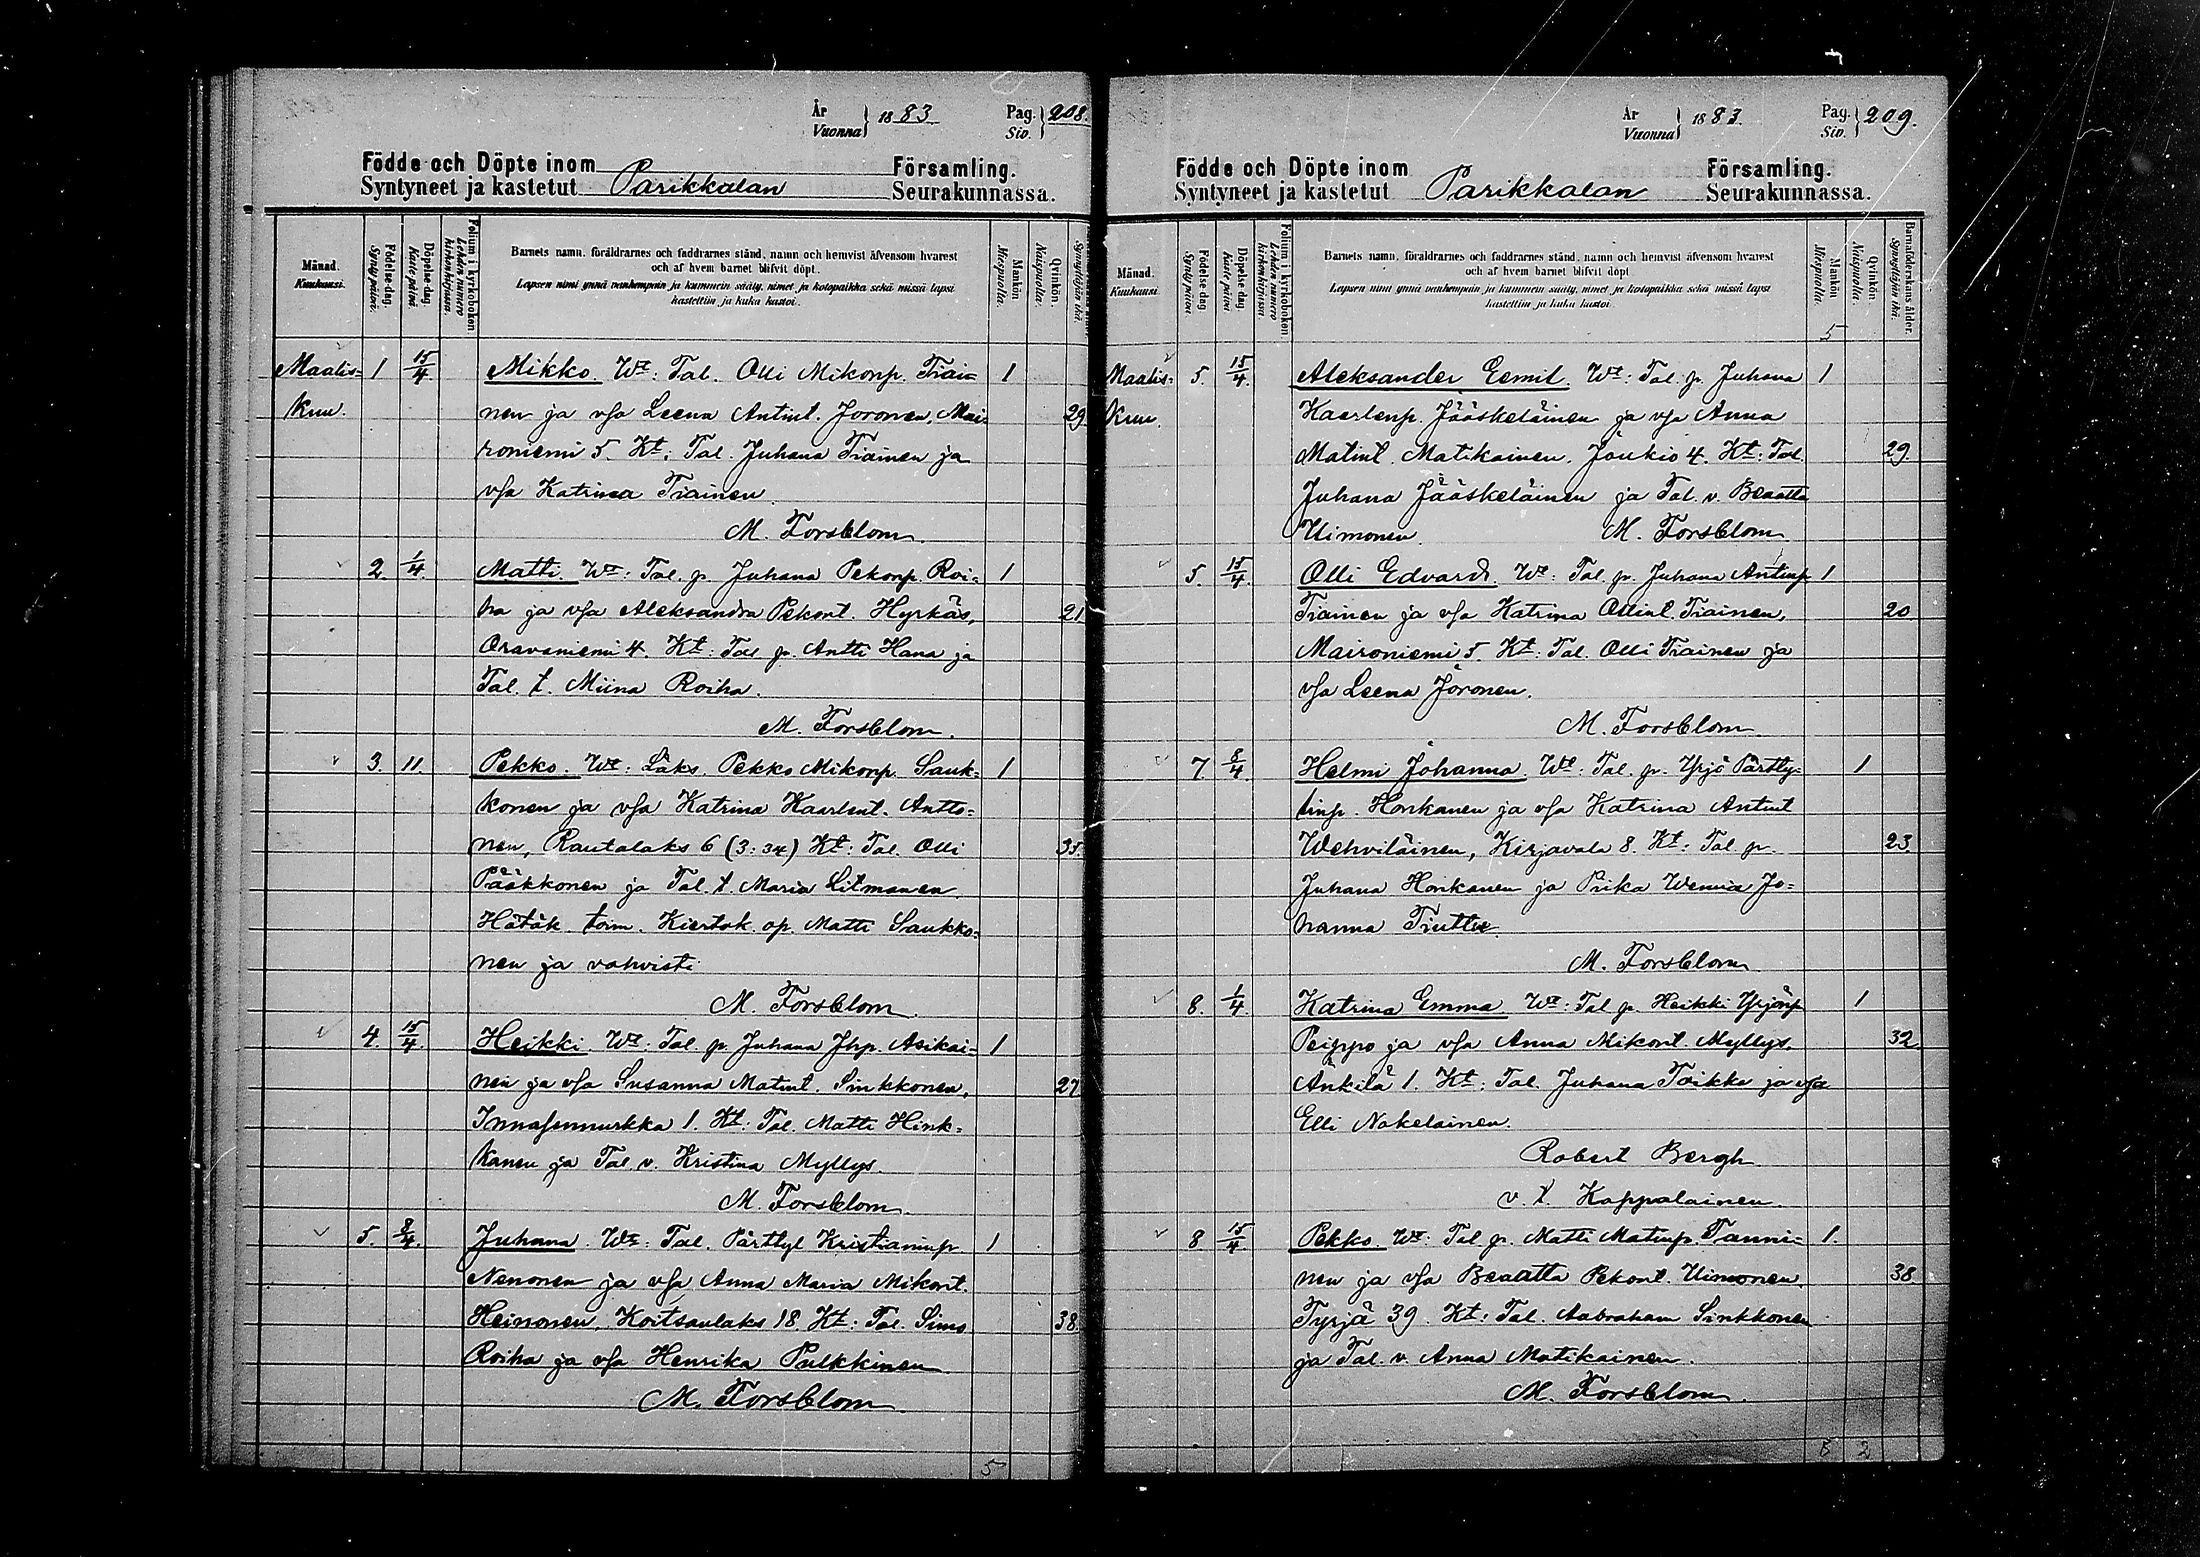 År Vuonna } 1883. Pag. Siv. } 208.
Födde och Döpte inom Församling.
Syntyneet ja kastetut Parikkalan Seurakunnassa.
Månad. Kuukausi.
Födelse-dag. Syntypäivä.
Döpelse-dag. Kaste-päivä.
Folium i kyrkoboken Lehden numero kirkonkirjassa.
Barnets namn, föräldrarnes och faddrarnes stånd, namn och hemvist äfvensom hvarest
och af hvem barnet blifvit döpt.
Lapsen nimi ynnä vanhempain ja kummein sääty, nimet ja kotopaikka sekä missä lapsi
kastettiin ja kuka kastoi.
Mankön Miespuolta.
Qvinkön Naispuolta.
Maalis= 1 15/4. Mikko. Wt: Tal. Olli Mikonp. Tiai= 1
kuu. nen ja vsa Leena Antint. Joronen, Mai= 29
roniemi 5. Kt: Tal. Juhana Tiainen ja
vsa Katrina Tiainen
M. Forsblom.
2 1/4. Matti. Wt: Tal. p. Juhana Pekonp. Roi= 1
ha ja vsa Aleksandra Pekont. Hyrkäs, 21
Oravaniemi 4. Kt: Tal p. Antti Hana ja
Tal. t. Miina Roiha.
M. Forsblom.
3. 11. Pekko. Wt: Läks. Pekko Mikonp. Sauk= 1
konen ja vsa Katrina Kaarlent. Antto=
nen, Rautalaks 6 (3:34) Kt: Tal. Olli 35.
Pääkkonen ja Tal. t. Maria Litmanen
Hätäk. toim. Kiertok. op. Matti Saukko=
nen ja vahvisti
M. Forsblom.
4. 15/4. Heikki. Wt: Tal. p. Juhana Jhp. Asikai= 1
nen ja vsa Susanna Matint. Sinkkonen, 27
Innasennurkka 1. Kt: Tal. Matti Hink=
kanen ja Tal. v. Kristina Myllys.
M. Forsblom.
5. 8/4. Juhana. Wt: Tal. Pärttyl Kristianinp 1
Nenonen ja vsa Anna Maria Mikont.
Heinonen, Koitsanlaks 18. Kt: Tal. Simo 38.
Roiha ja vsa Henrika Pulkkinen
M. Forsblom.
5
År Vuonna } 1883. Pag. Siv. } 209.
Födde och Döpte inom Församling.
Syntyneet ja kastetut Parikkalan Seurakunnassa.
Månad. Kuukausi.
Födelse-dag Syntypäivä
Döpelse-dag Kaste-päivä
Folium i kyrkoboken Lehden numero kirkonkirjassa
Barnets namn, föräldrarnes och faddrarnes stånd, namn och hemvist äfvensom hvarest
och af hvem barnet blifvit döpt
Lapsen nimi ynnä vanhempain ja kummein sääty, nimet ja kotopaikka sekä missä lapsi
kastettiin ja kuka kastoi.
Mankön Miespuolta.
Qvinkön Naispuolta.
Barnaföderskans ålder. Synnyttäjän ikä.
5
Maalis= 5. 15/4. Aleksander Eemil. Wt: Tal. p. Juhana 1
kuu. Kaarlenp. Jääskeläinen ja vsa Anna
Matint. Matikainen. Joukio 4. Kt: Tal. 29.
Juhana Jääskeläinen ja Tal. v. Beaatta
Uimonen. M. Forsblom
5. 15/4. Olli Edvard. Wt: Tal. p. Juhana Antinp 1
Tiainen ja vsa Katrina Ollint. Tiainen, 20.
Maironiemi 5. Kt: Tal. Olli Tiainen ja
vsa Leena Joronen.
M. Forsblom
7 8/4. Helmi Johanna. Wt: Tal. p. Yrjö Pärtty= 1
linp. Honkanen ja vsa Katrina Antint
Wehviläinen, Kirjavala 8. Kt: Tal. p. 23.
Juhana Honkanen ja Piika Wenna Jo=
hanna Tiuttu.
M. Forsblom
8. 1/4. Katrina Emma. Wt: Tal. p. Heikki Yrjönp 1
Peippo ja vsa Anna Mikont. Myllys, 32.
Änkilä 1. Kt: Tal. Juhana Toikka ja vsa
Elli Nokelainen.
Robert Bergh.
v. t. Kappalainen.
8 15/4. Pekko. Wt: Tal p. Matti Matinp. Tanni= 1.
nen ja vsa Beaatta Pekont. Uimonen. 38
Tyrjä 39. Kt: Tal. Aabraham Sinkkonen
ja Tal. v. Anna Matikainen.
M. Forsblom.
5 2